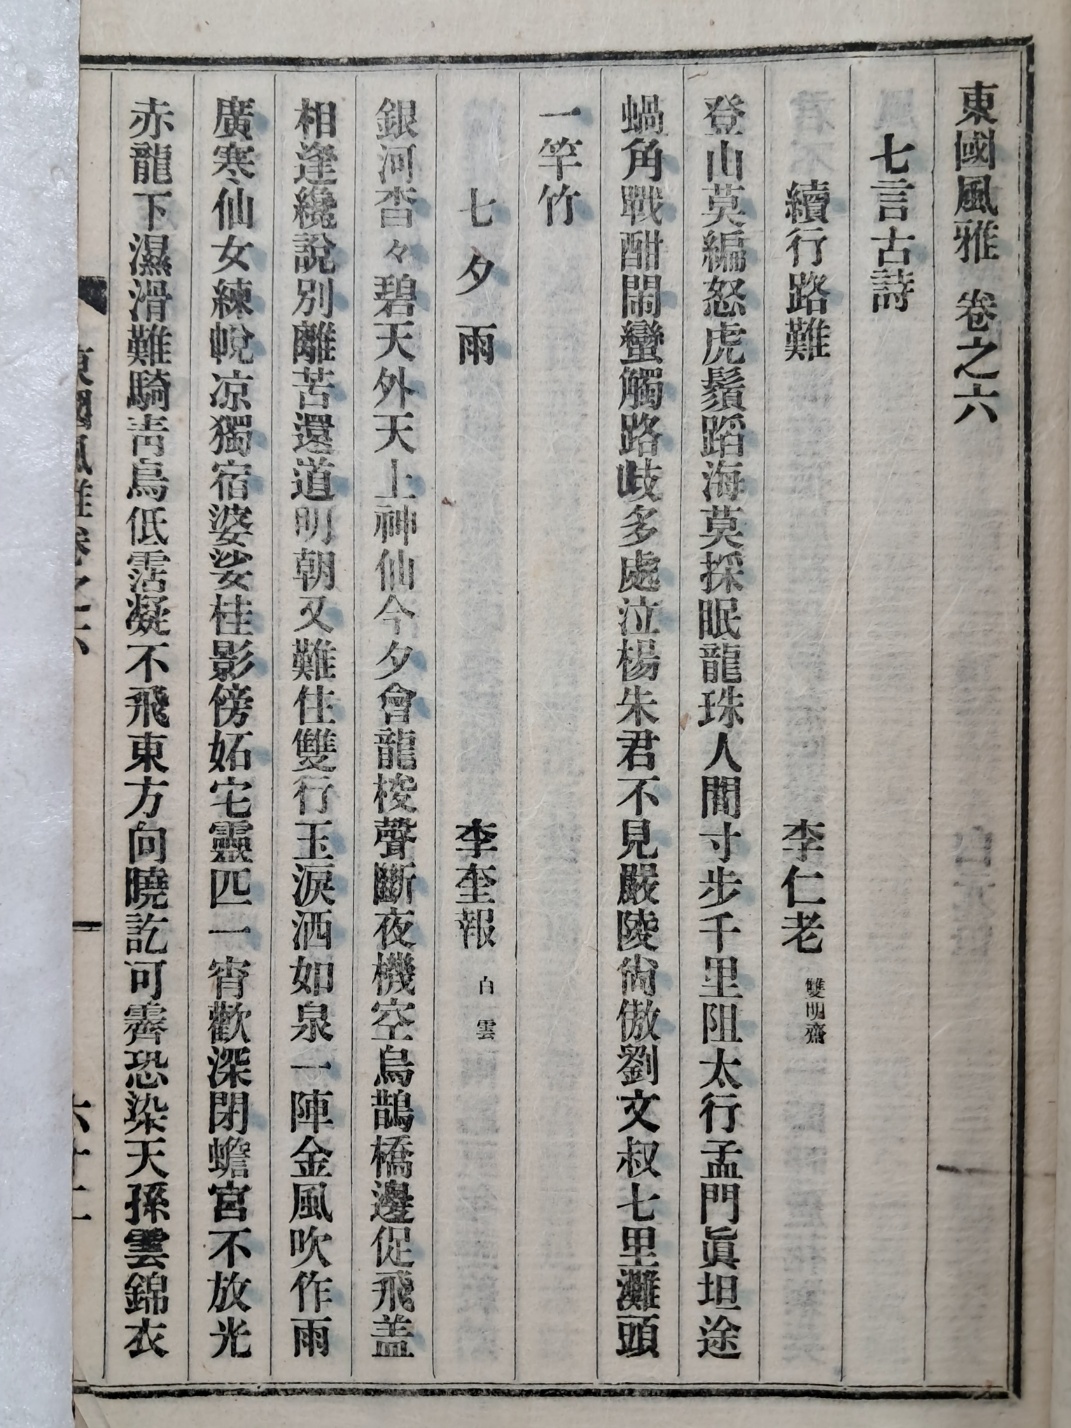 東國風雅 卷之六
七言古詩
續行路難 李仁老 雙明齋
登山莫編怒虎鬚蹈海莫採眠龍珠人間寸步千里阻太行孟門眞坦途
蝸角戰酣閙蠻觸路歧多處泣楊朱君不見嚴陵尙傲劉文叔七里灘頭
一竿竹
七夕雨 李奎報 白雲
銀河杳々碧天外天上神仙今夕會龍梭聲斷夜機空烏鵲橋邊促飛盖
相逢纔說別離苦還道明朝又難住雙行玉淚洒如泉一陣金風吹作雨
廣寒仙女練帨凉獨宿婆娑桂影傍妬宅靈匹一宵歡深閉蟾宮不放光
赤龍下濕滑難騎靑鳥低霑凝不飛東方向曉訖可霽恐染天孫雲錦衣
東國風雅卷之六